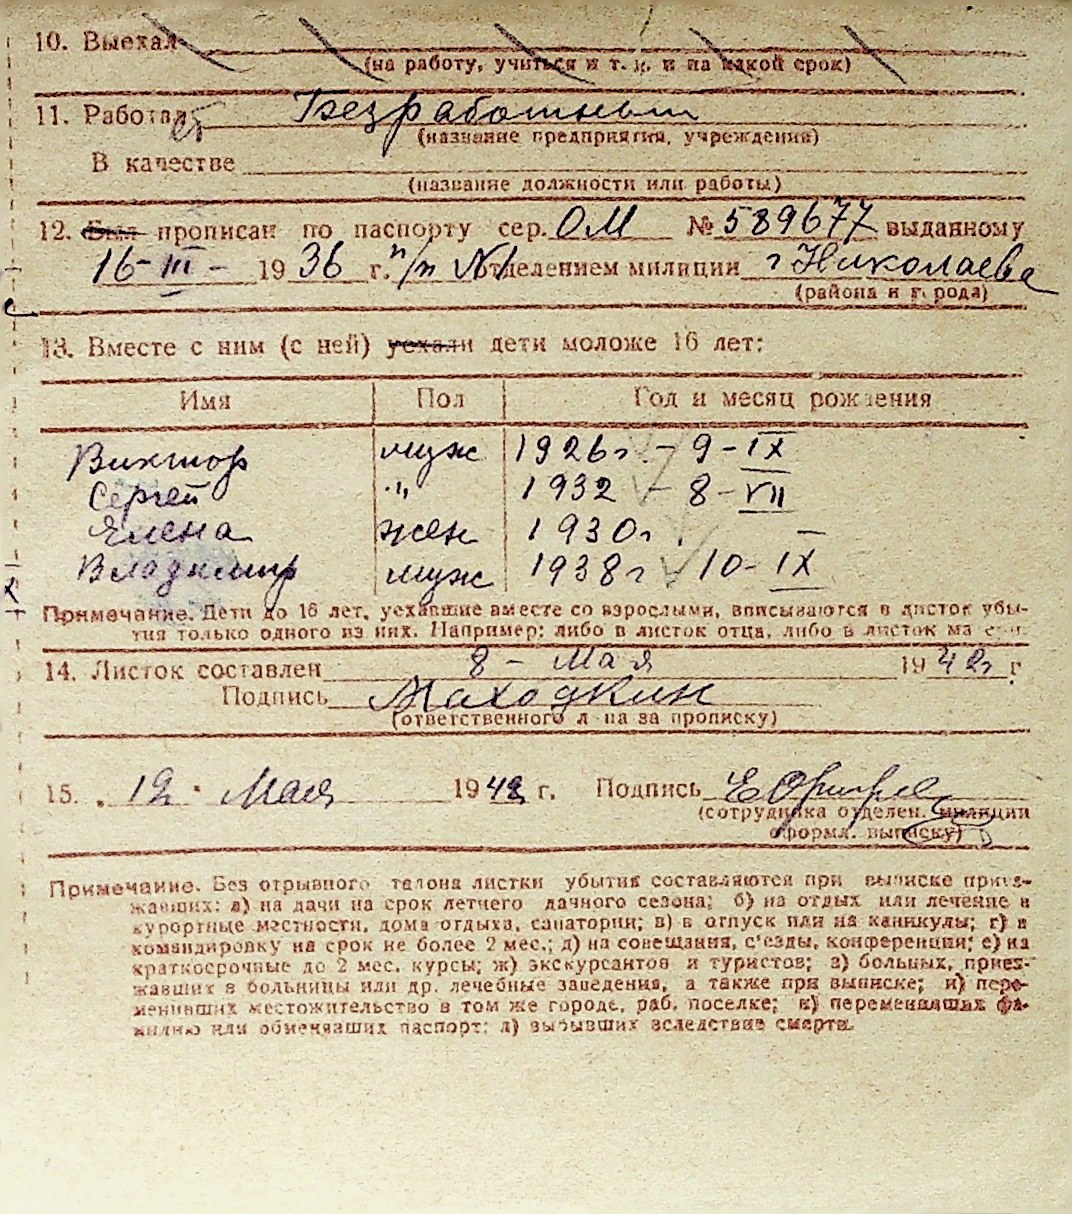 10. Выехал
(на работу, учиться и т. д. и на какой срок)
11. Работает Безработный
(название предприятия, учреждения)
В качестве
(название должности или работы)
12. Был прописан по паспорту сер. ОМ № 589677 выданному
16-III- 1936 г. п/п №1 отделением милиции г Николаева
(района и города)
13. Вместе с ним (с ней) уехали дети моложе 16 лет:
Имя Пол Год и месяц рождения
Виктор муж 1926г. - 9-IX
Сергей -"- 1932 - 8-VII
Елена жен 1930г. -
Владимир муж 1938г 10-IX
Примечание. Дети до 16 лет, уехавшие вместе со взрослыми, вписываются в листок убы-
тия только одного из них. Например: либо в листок отца, либо в листок матери.
14. Листок составлен 8 - Мая 1942г г.
Подпись Находкин
(ответственного лица за прописку)
15. " 12 " Мая 1942 г. Подпись
(сотрудника отделен. милиции
оформл. выписку)
Примечание. Без отрывного талона листки убытия составляются при выписке приез-
жавших: а) на дачи на срок летнего дачного сезона; б) на отдых или лечение в
курортные местности, дома отдыха, санатории; в) в отпуск или на каникулы; г) в
командировку на срок не более 2 мес.; д) на совещания, с'езды, конференции; е) на
краткосрочные до 2 мес. курсы; ж) экскурсантов и туристов; з) больных, приез-
жавших в больницы или др. лечебные заведения, а также при выписке; и) пере-
менивших местожительство в том же городе, раб. поселке; к) переменивших фа-
милию или обменявших паспорт; л) выбывших вследствие смерти.